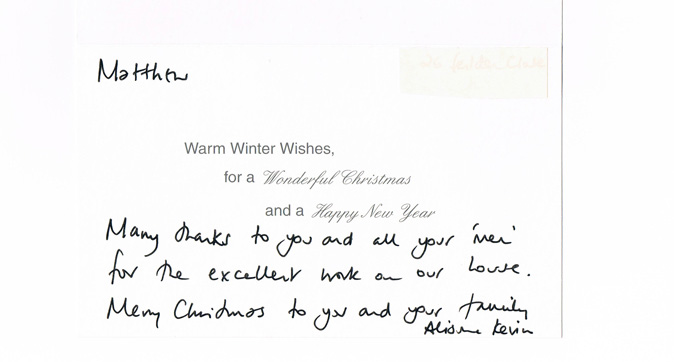 Matthew
Warm Winter Wishes,
for a Wonderful Christmas
and a Happy New Year
Many thanks to you and all your 'men'
for the excellent work on our house.
Merry Christmas to you and your family
Kevin